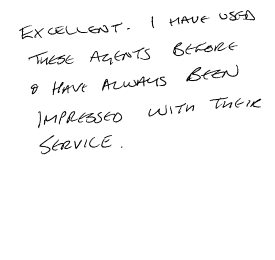 EXCELLENT. I HAVE USED
THESE AGENTS BEFORE
& HAVE ALWAYS BEEN
IMPRESSED WITH THEIR
SERVICE.